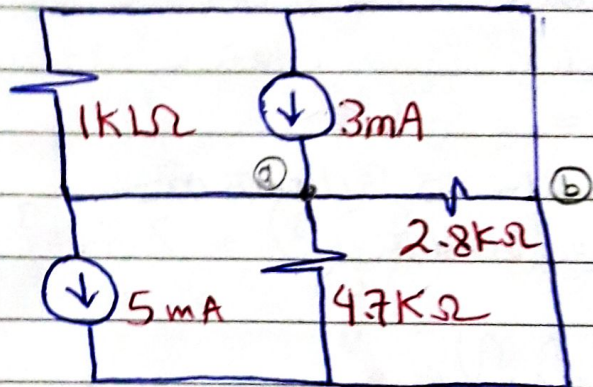 1KΩ
3mA
a
b
2.8KΩ
5mA
4.7KΩ